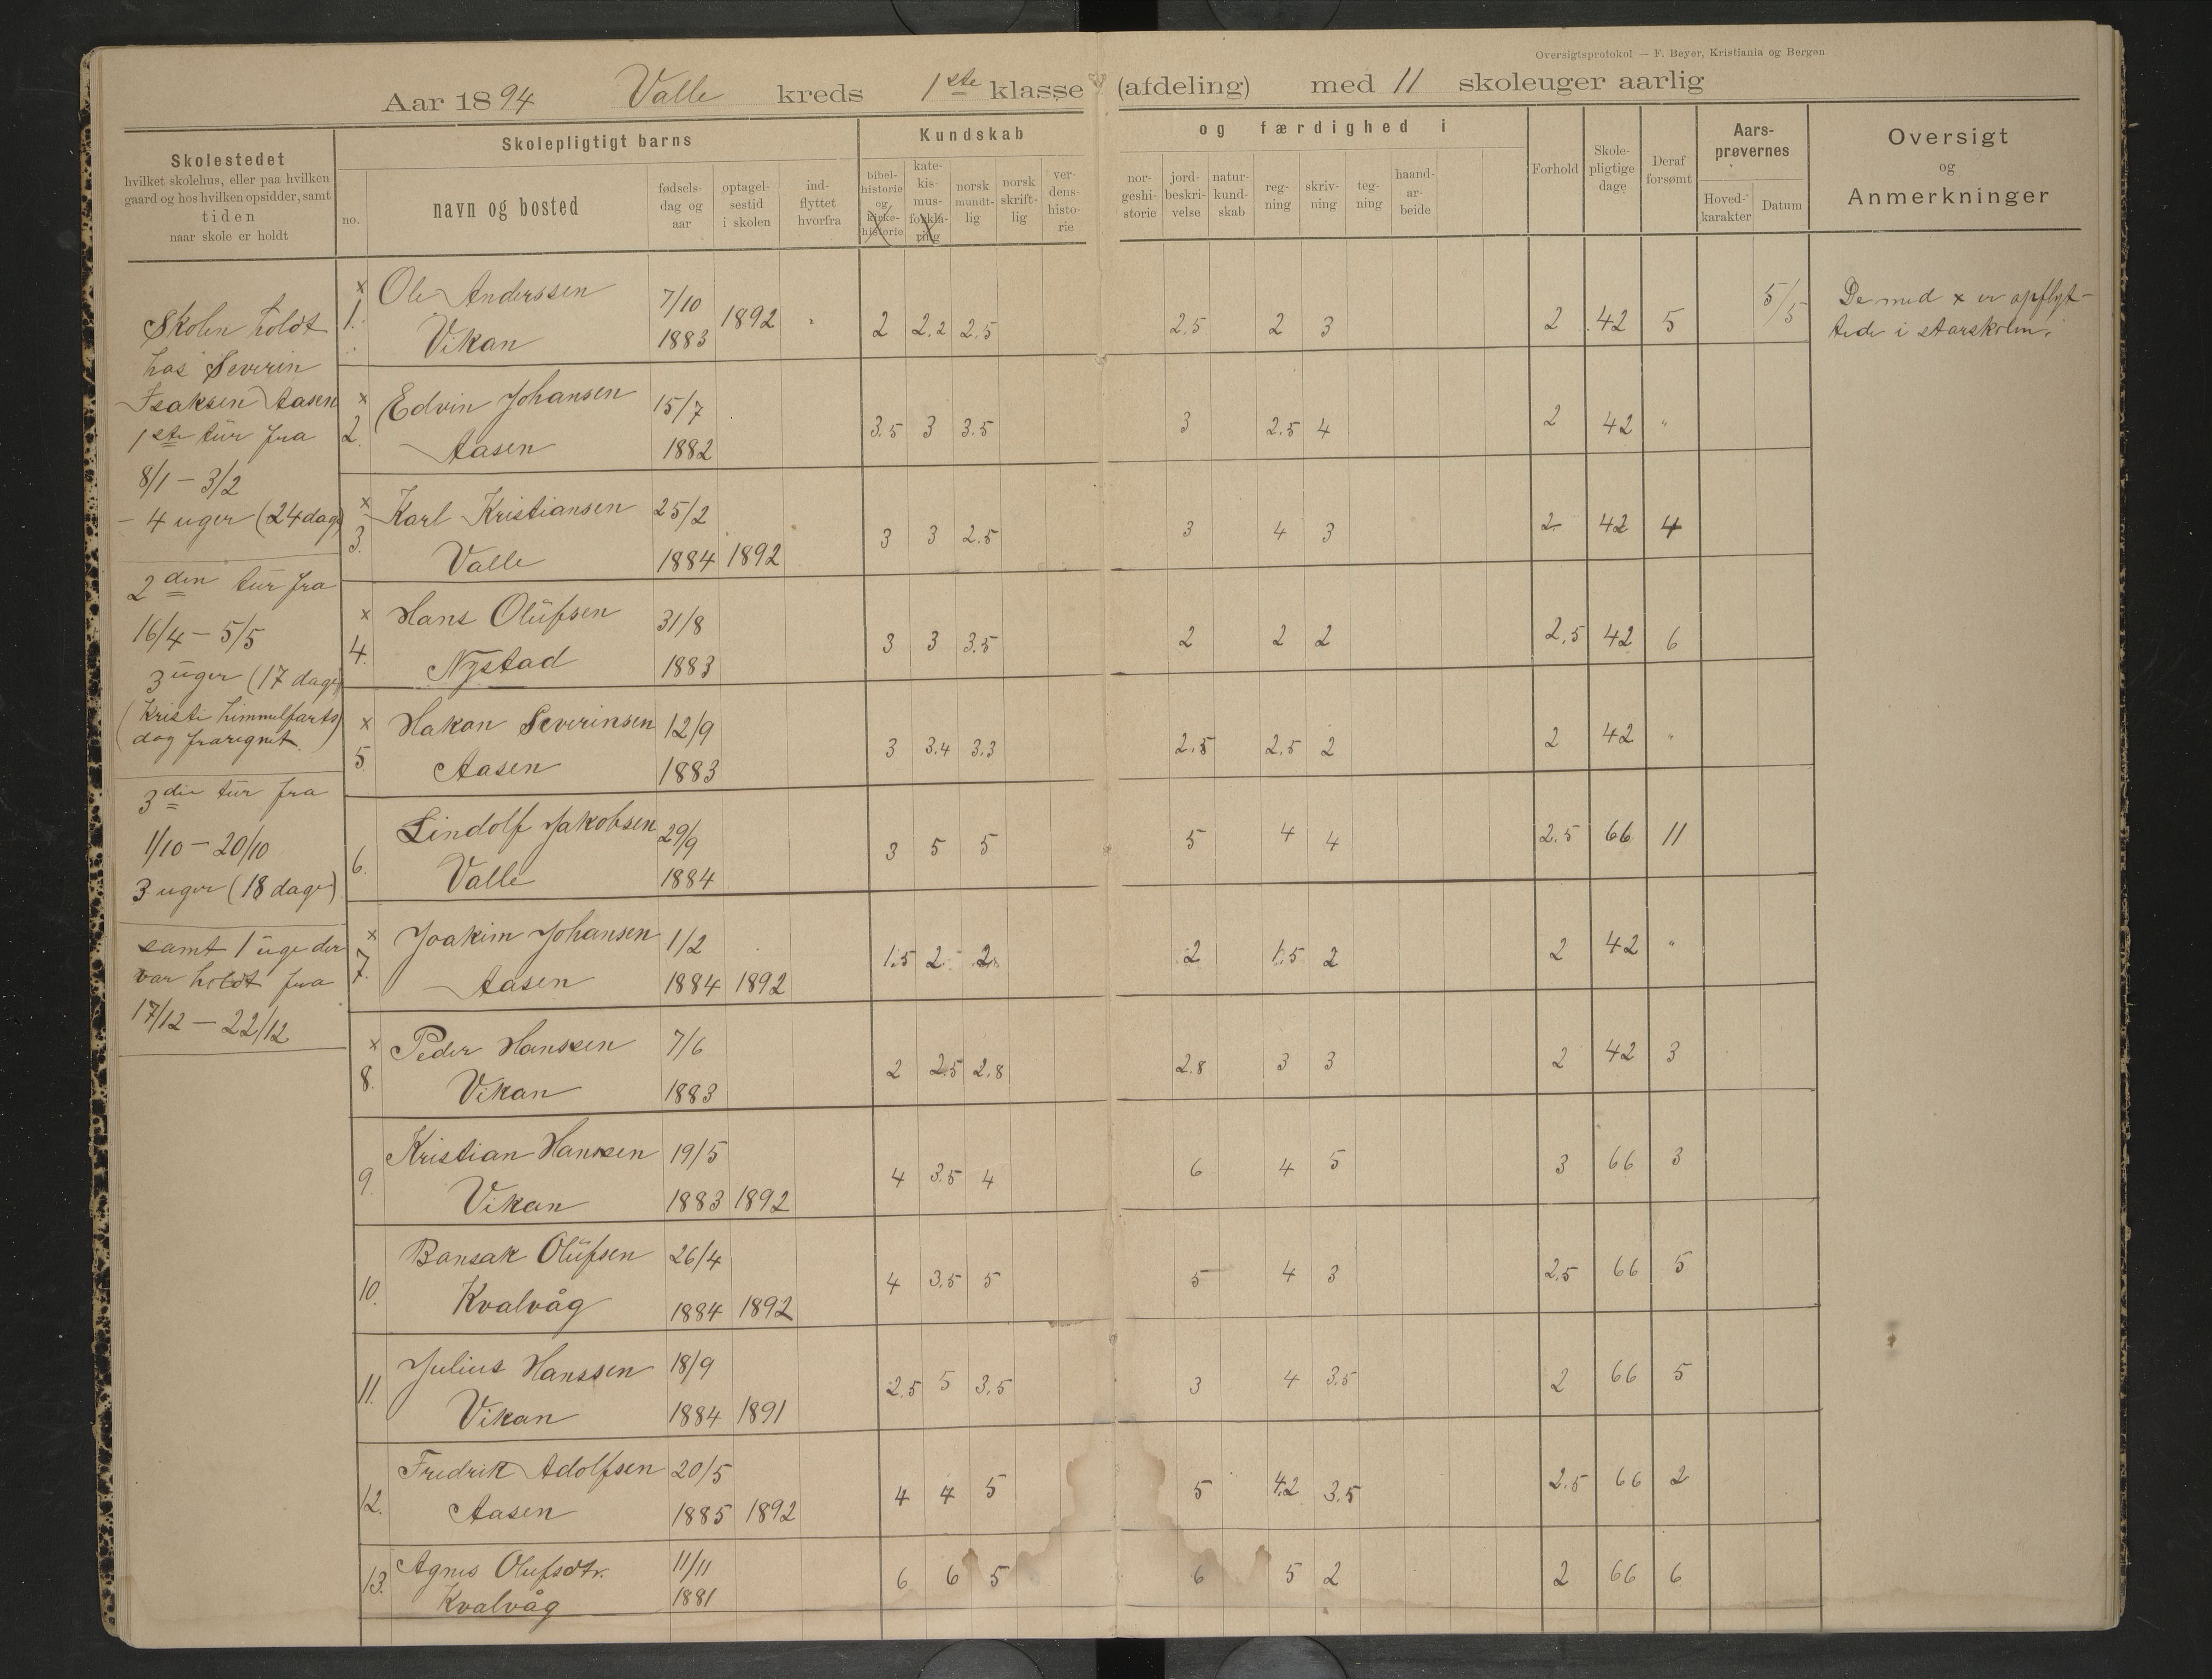 Oversigtsprotokol — F. Beyer, Kristiania og Bergen
Aar 1894 Valle kreds 1ste klasse (afdeling) med 11 skoleuger aarlig
Skolestedet
hvilket skolehus, eller paa hvilken
gaard og hos hvilken opsidder, samt
tiden
naar skole er holdt
Skolepligtigt barns
no.
navn og bosted
fødsels-
dag og
aar
optagel-
sestid
i skolen
ind-
flyttet
hvorfra
Kundskab
bibel-
historie
og
kirke-
historie
kate-
kis-
mus-
forkla-
ring
norsk
mundt-
lig
norsk
skrift-
lig
ver-
dens-
histo-
rie
og færdighed i
nor-
geshi-
storie
jord-
beskri-
velse
natur-
kund-
skab
reg-
ning
skriv-
ning
teg-
ning
haand-
ar-
beide
Forhold
Skole-
pligtige
dage
Deraf
forsømt
Aars-
prøvernes
Hoved-
karakter
Datum
Oversigt
og
Anmerkninger
Skolen holdt
hos Severin
Isaksen Aasen
1ste tür fra
8/1 - 3/2
- 4 uger (24 dage)
2den tür fra
16/4 - 5/5
3 üger (17 dage)
(Kristi himmelfarts)
dag fraregnet.
3die tür fra
1/10 - 20/10
3 uger (18 dage)
samt 1 üge der
var holdt fra
17/12 - 22/12
x Ole Anderssen 7/10
1. Vikan 1883 1892 2 2.2 2.5 2.5 2 3 2 42 5 5/5
De med x er opflyt-
tede i storskolen.
x Edvin Johansen 15/7
2. Aasen 1882 3.5 3 3.5 3 2.5 4 2 42 "
x Karl Kristiansen 25/2
3. Valle 1884 1892 3 3 2.5 3 4 3 2 42 4
x Hans Olüfsen 31/8
4. Nystad 1883 3 3 3.5 2 2 2 2.5 42 6
x Hakon Severinsen 12/9
5 Aasen 1883 3 3.4 3.3 2.5 2.5 2 2 42 "
Lindolf Jakobsen 29/9
6. Valle 1884 3 5 5 5 4 4 2.5 66 11
x Joakim Johansen 1/2
7. Aasen 1884 1892 1.5 2 2 2 1.5 2 2 42 "
x Peder Hanssen 7/6
8. Vikan 1883 2 2.5 2.8 2.8 3 3 2 42 3
Kristian Hanssen 19/5
9. Vikan 1883 1892 4 3.5 4 6 4 5 3 66 3
Bansak Olüfsen 26/4
10. Kvalvåg 1884 1892 4 3.5 5 5 4 3 2.5 66 5
Julius Hanssen 18/9
11. Vikan 1884 1891 2.5 5 3.5 3 4 3.5 2 66 5
Fredrik Adolfsen 20/5
12. Aasen 1885 1892 4 4 5 5 4.2 3.5 2.5 66 2
Agnes Olufsdtr. 11/11
13. Kvalvåg 1881 6 6 5 6 5 2 2 66 6